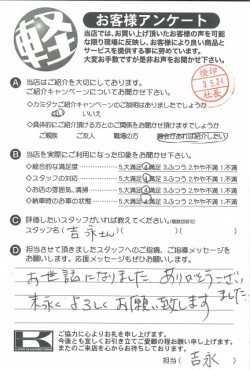 軽
お客様アンケート
当店では、お買い上げ頂いたお客様の声を可能
な限り現場に反映し、お客様により良い商品と
サービスを提供する事に努めています。
大変お手数ですが是非お声をお聞かせ下さい。
検印
3.5.24
社長
A 当店はご紹介を大切にしております。
ご紹介キャンペーンについてお聞かせ下さい。
◇カミタケご紹介キャンペーンのご説明はありましたでしょうか
はい いいえ
◇具体的にご紹介頂ける方とのご関係をお聞かせ頂けますでしょうか
ご親族 ご友人 職場の方 機会があれば紹介したい
B 当店を実際にご利用になった印象をお聞かせ下さい。
◇総合的な満足度 5.大満足 4.満足 3.ふつう 2.やや不満 1.不満
◇スタッフの対応 5.大満足 4.満足 3.ふつう 2.やや不満 1.不満
◇お店の雰囲気,清潔 5.大満足 4.満足 3.ふつう 2.やや不満 1.不満
◇納車時のお車の状態 5.大満足 4.満足 3.ふつう 2.やや不満 1.不満
C 評価したいスタッフがいれば教えてください。
スタッフ名( 吉永さん )
D 担当させて頂きましたスタッフへのご指摘、ご指導メッセージを
お願いします。応援メッセージもぜひお願いします。
お世話になりました。ありがとうござい
ました。
末永く よろしく お願い致します
K
ご協力に心よりお礼を申し上げます。
今後とも宜しくお引き立てご愛顧の程お願い申し上げます。
またのご来店を心からお待ちしております。
担当( 吉永 )